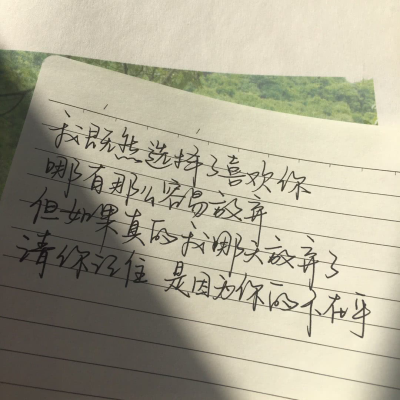 我既然选择了喜欢你
哪有那么容易放弃
但如果真的我哪天放弃了
请你记住 是因为你的不在乎